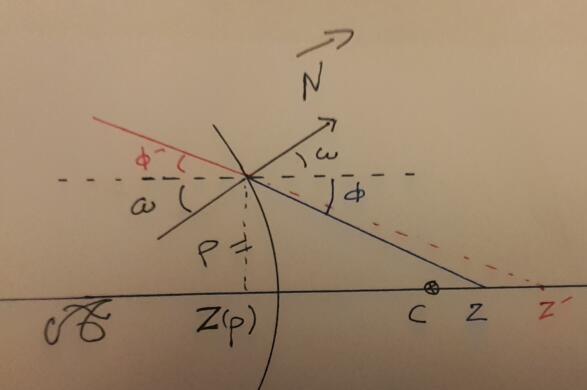 N
φ'
ω
ω
φ
P
Z(p)
C
Z
Z'